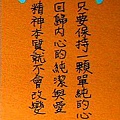 只要保持一顆單純的心
回歸內心的純潔與愛
精神本質就不會改變